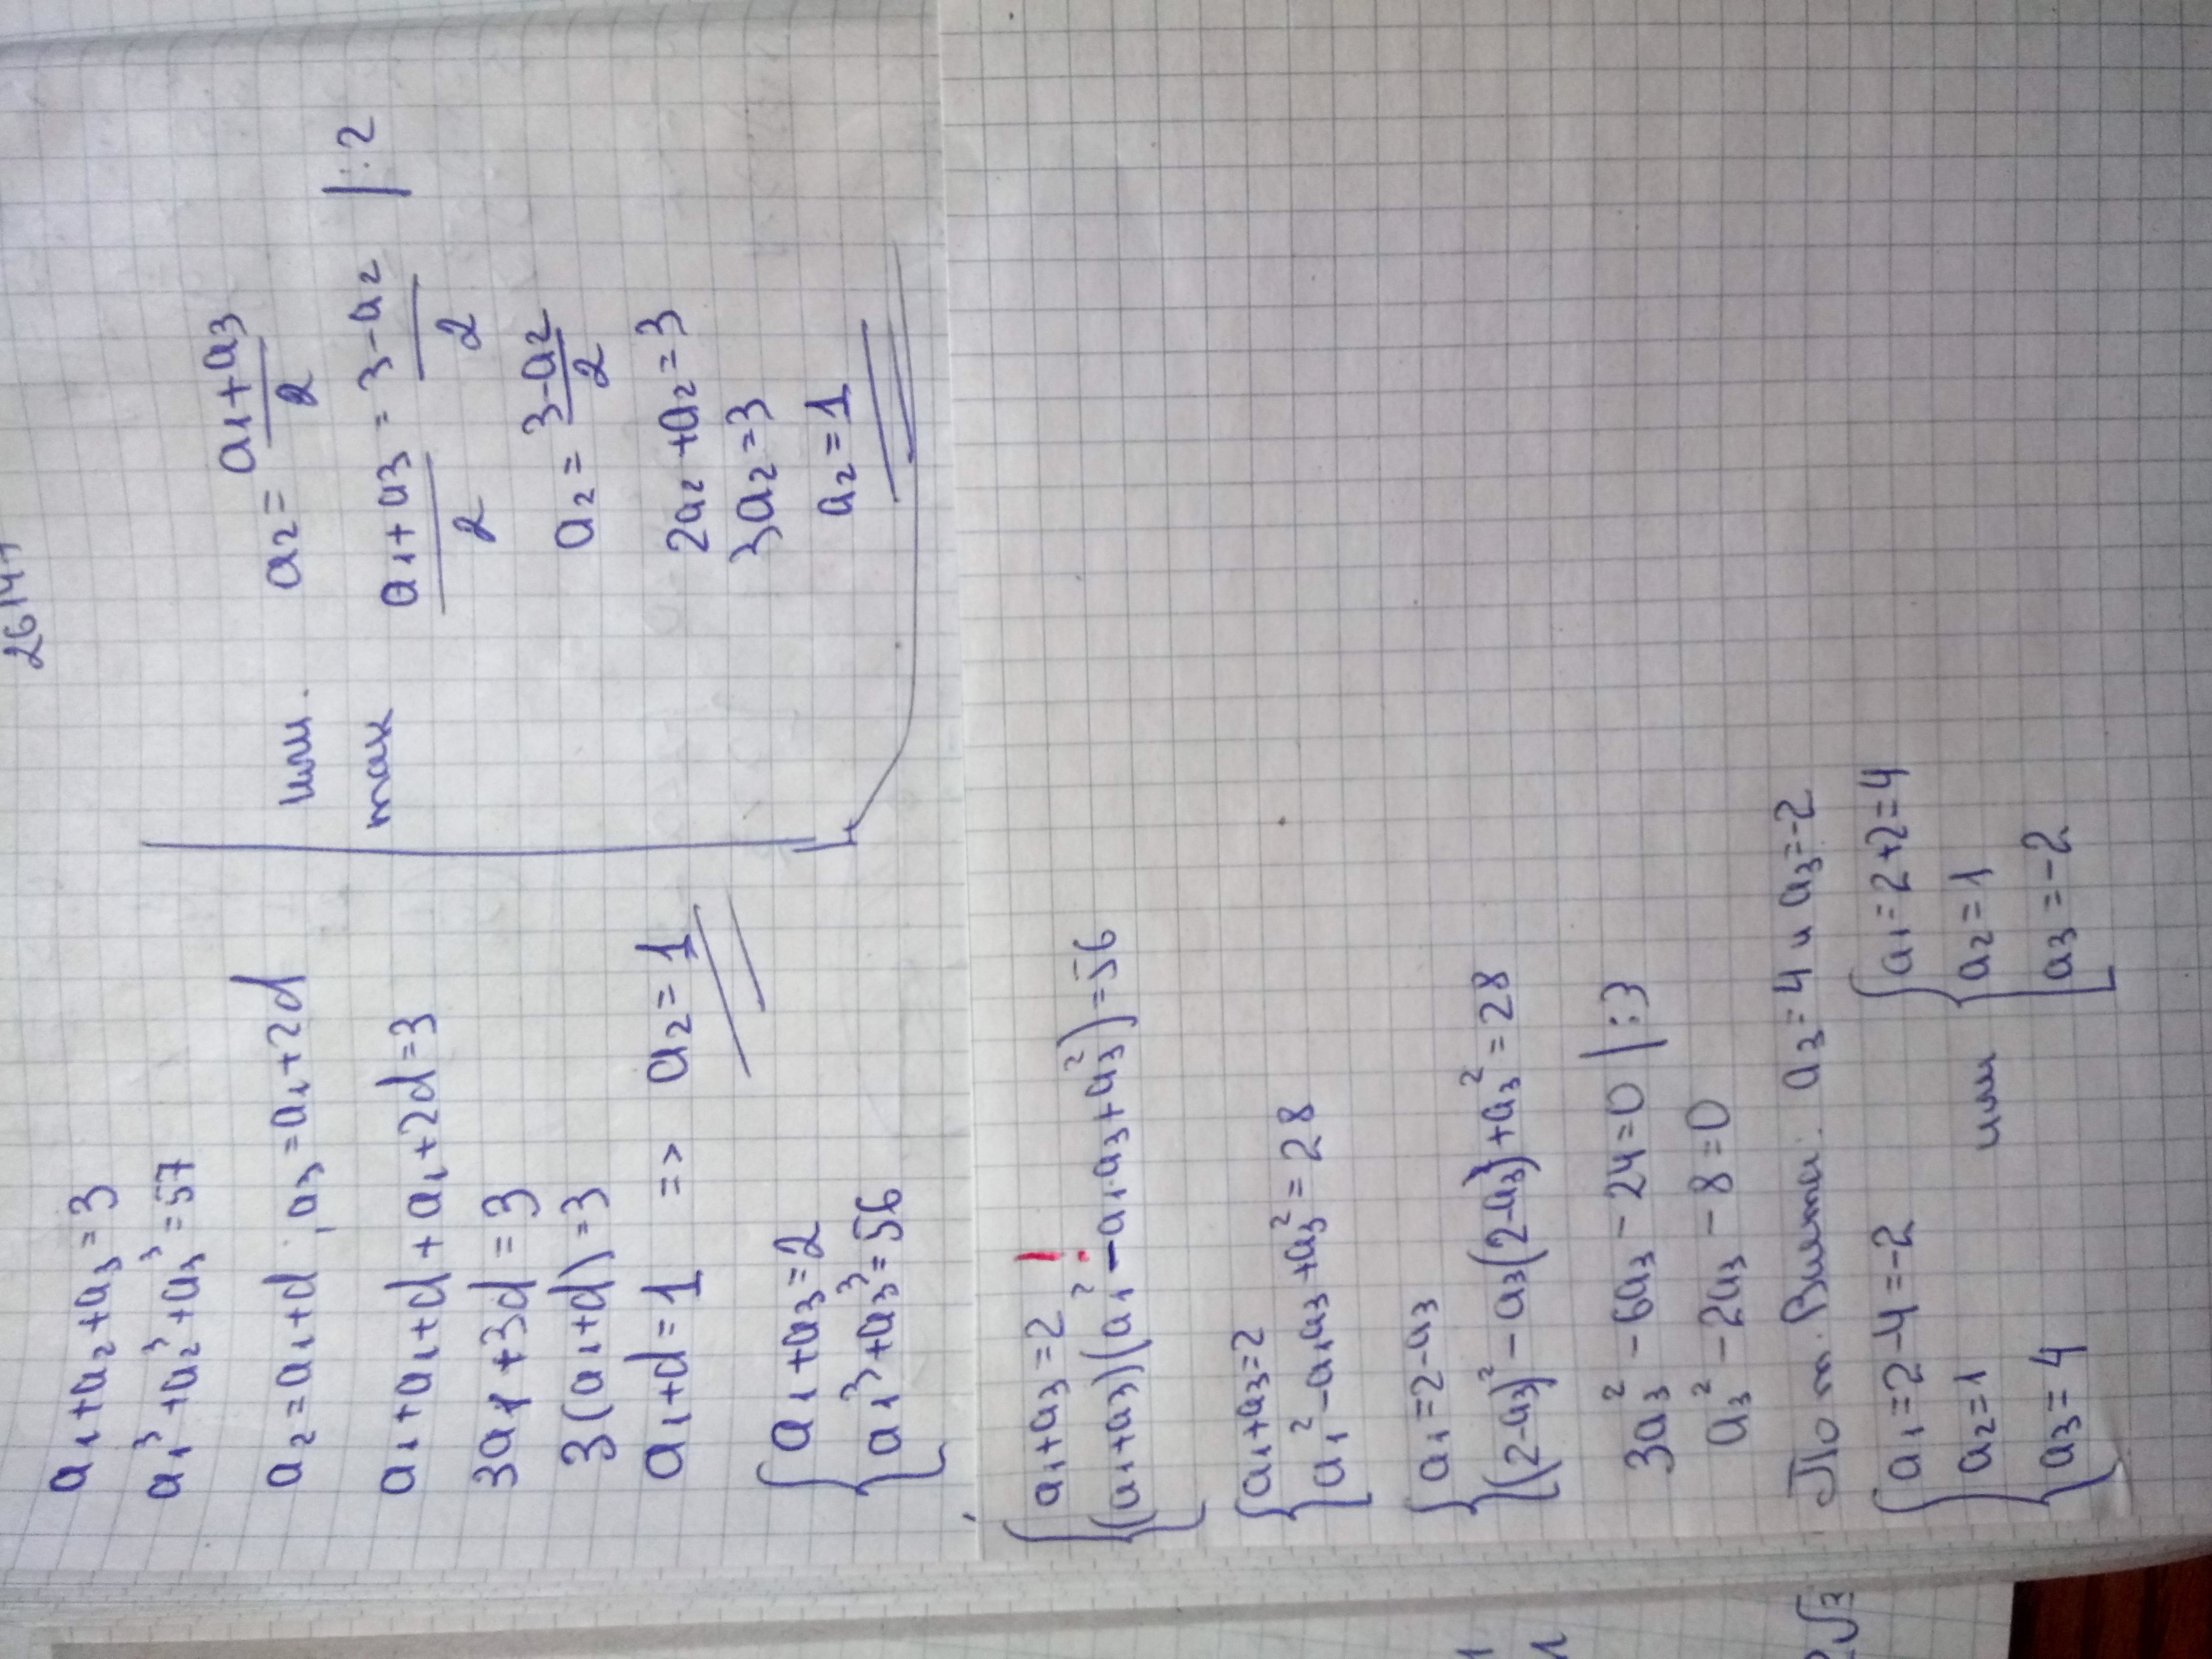 26147
a₁+a₂+a₃=3
a₁³+a₂³+a₃³=57
a₂=a₁+d, a₃=a₁+2d
a₁+a₁+d+a₁+2d=3
3a₁+3d=3
3(a₁+d)=3
a₁+d=1 => a₂=1
{a₁+a₃=2
{a₁³+a₃³=56
или
так
a₂=(a₁+a₃)/2
(a₁+a₃)/2=(3-a₂)/2 |:2
a₂=(3-a₂)/2
2a₂+a₂=3
3a₂=3
a₂=1
{a₁+a₃=2 !
{(a₁+a₃)(a₁²-a₁·a₃+a₃²)=56
{a₁+a₃=2
{a₁²-a₁a₃+a₃²=28
{a₁=2-a₃
{(2-a₃)²-a₃(2-a₃)+a₃²=28
3a₃²-6a₃-24=0 |:3
a₃²-2a₃-8=0
По т. Виета: a₃=4 и a₃=-2
{a₁=2-4=-2
{a₂=1
{a₃=4
или
{a₁=2+2=4
{a₂=1
{a₃=-2